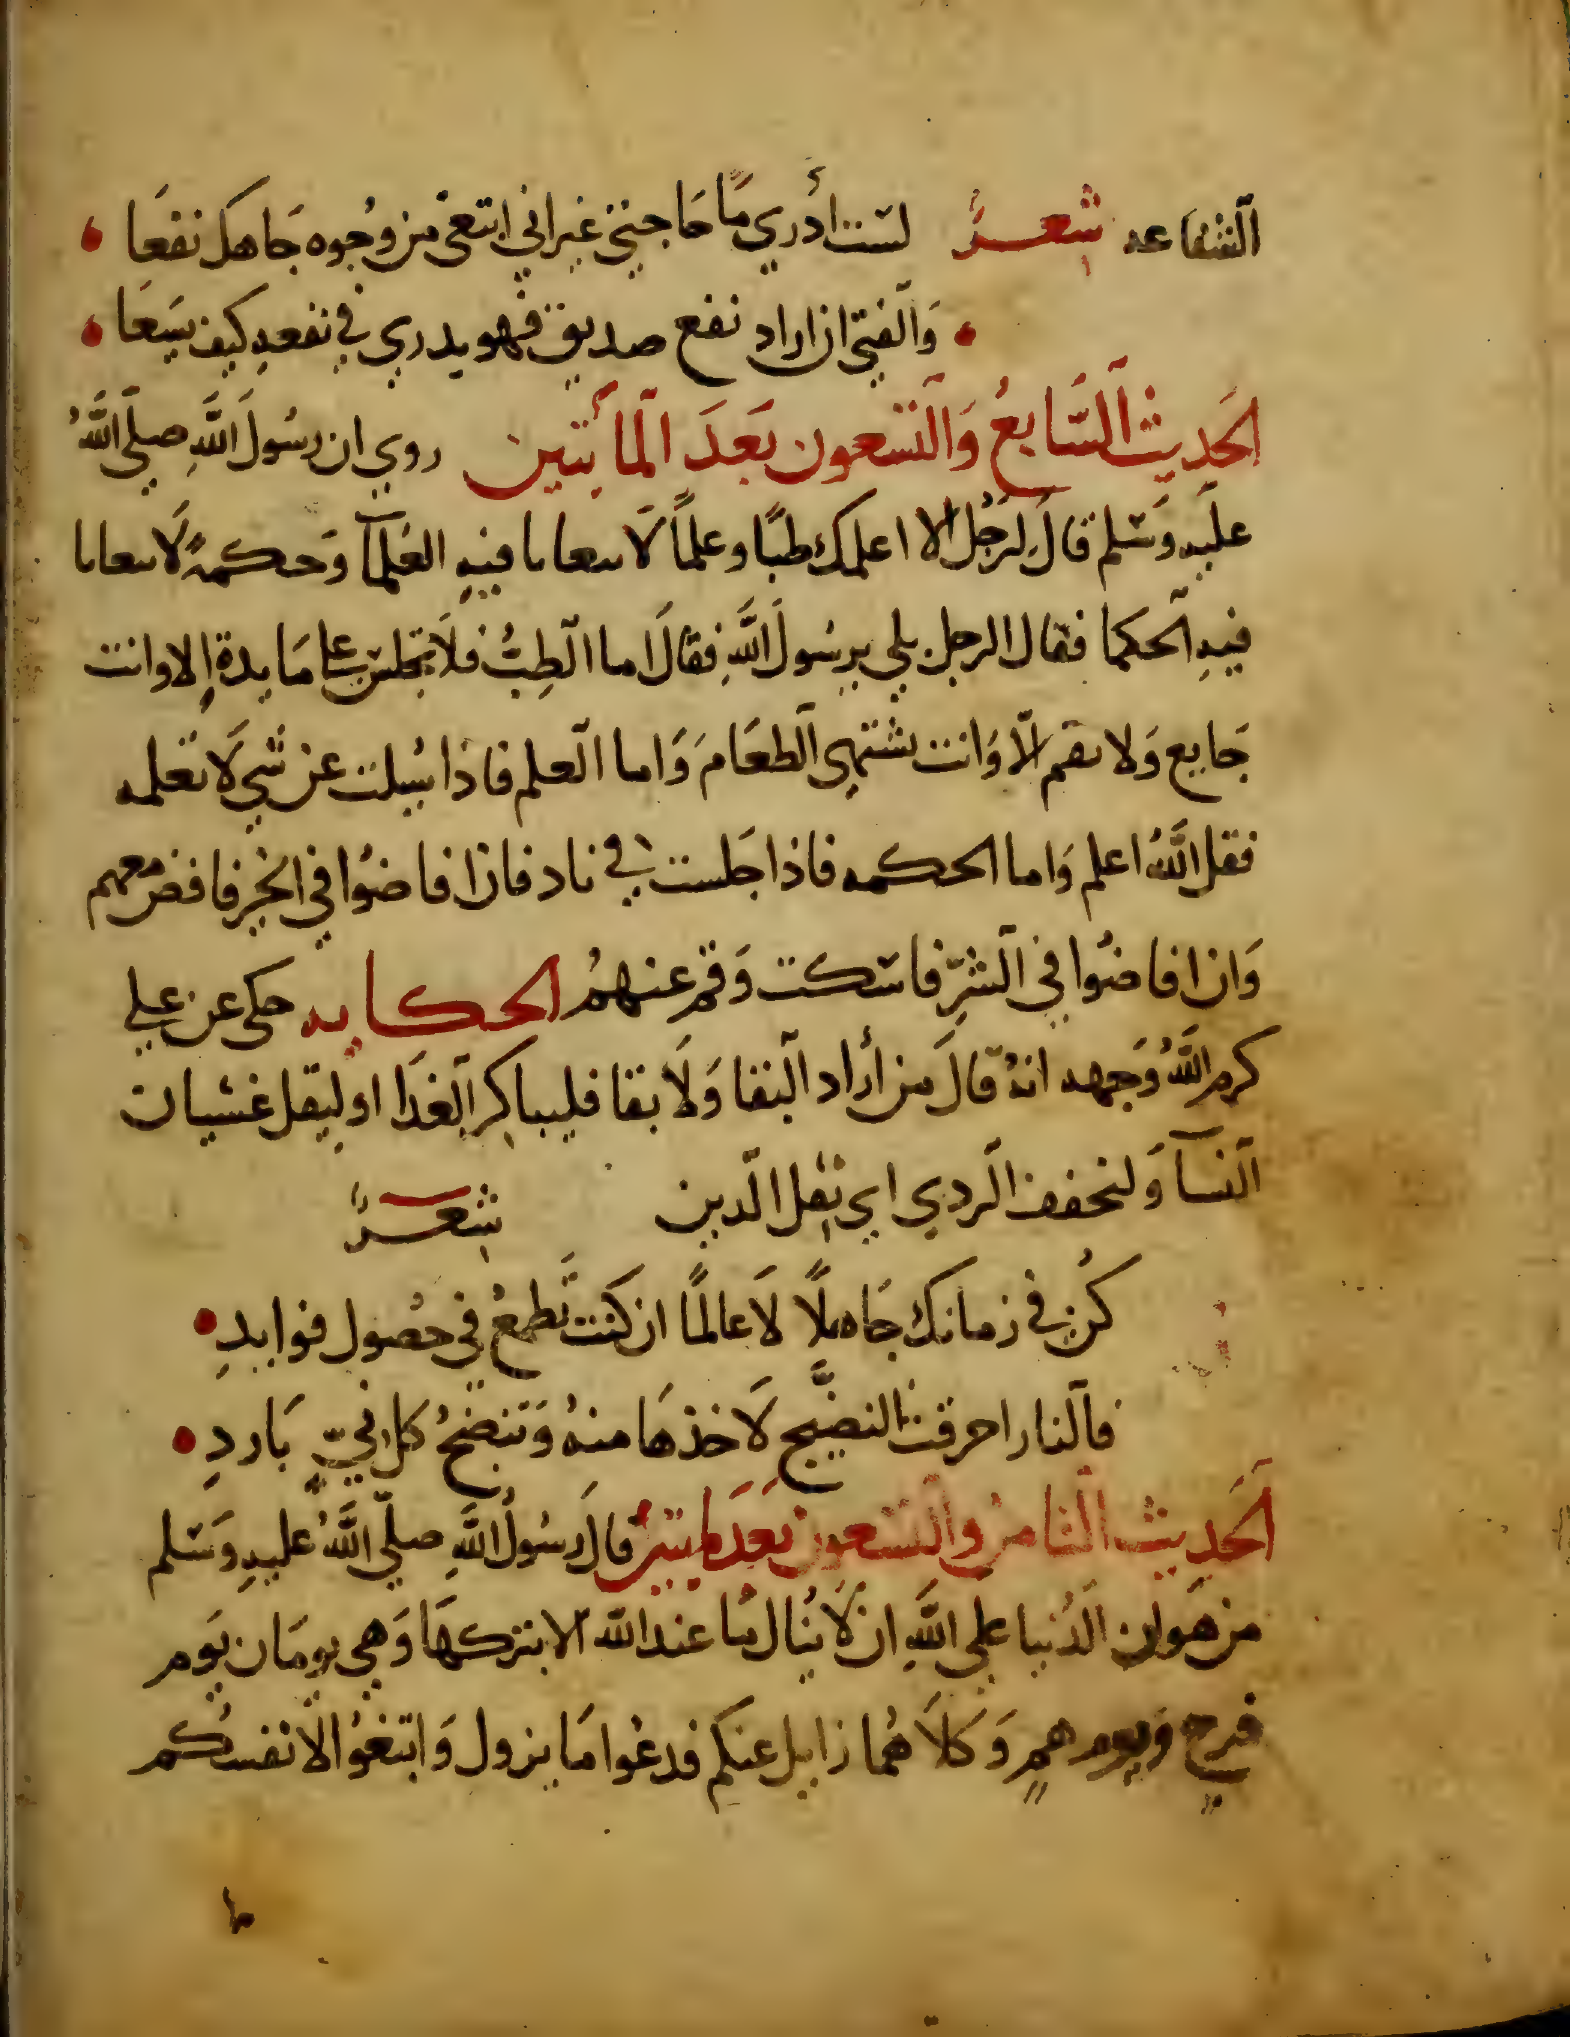 الشفاعه شعر لست أدري ما حاجتي غير اني ابتغي من وجوه جاهك نفعا
والفتي ان اراد نفع صديق فهو يدري في نفعه كيف يسعا
الحديث السابع والتسعون بعد المأيتين روي ان رسول الله صلي الله
عليه وسلم قال لرجل الا اعلمك طبا وعلما لا سعايا فيه العلمآ وحكمة لا سعايا
فيه الحكما فقال الرجل بلي يرسول الله فقال اما الطب فلا تجلس علي مايدة إلا وانت
جايع ولا تقم الا وانت تشتهي الطعام واما العلم فاذا سيلت عن شي لا تعلمه
فقل الله اعلم واما الحكمه فاذا جلست في ناد فان افاضوا في الخير فافض معهم
وان افاضوا في الشر فاسكت وقم عنهم الحكايه حكي عن علي
كرم الله وجهه انه قال من أراد البقا ولا بقا فليباكر الغدا وليقل غشيان
النسآ وليخفف الردي اي ثقل الدين شعر
كن في زمانك جاهلا لا عالما ان كنت تطمع في حصول فوايد
فالنار احرقت النضيج لاخذها منه وتنضج كل ني بارد
الحديث الثامن والتسعون بعد مايتين قال رسول الله صلي الله عليه وسلم
من هوان الدنيا علي الله ان لا ينال ما عند الله الا بتركها وهي يومان يوم
فرح ويوم هم وكلاهما زايل عنكم فدعوا ما يزول وابتغوا لانفسكم